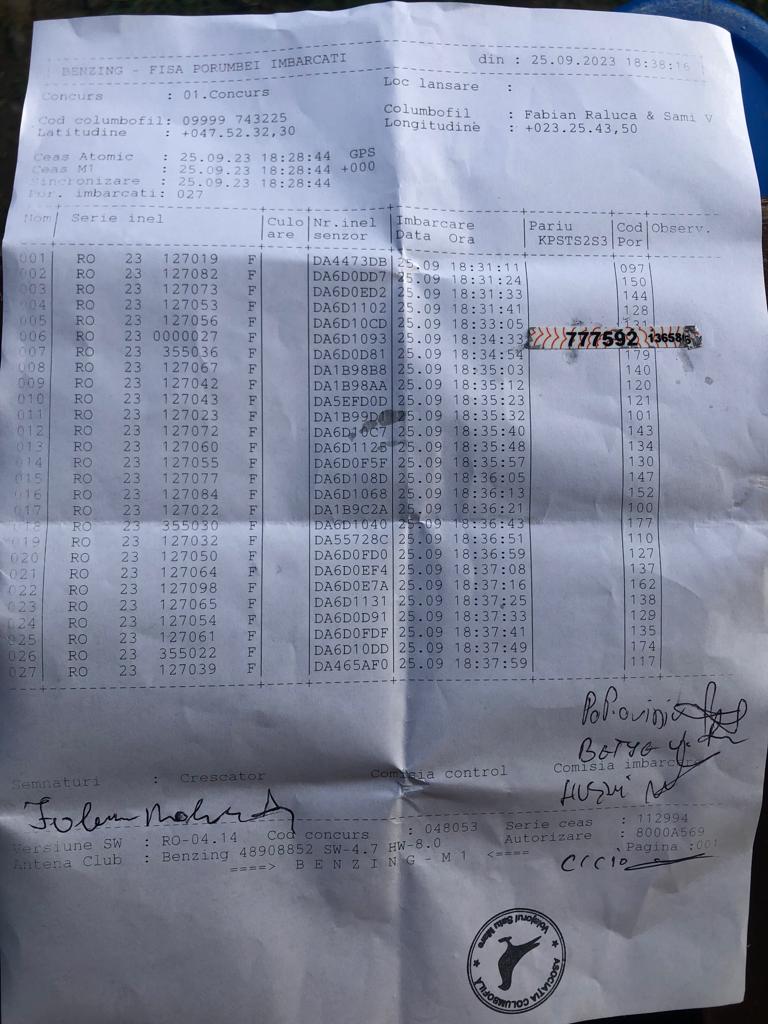 BENZING - FISA PORUMBEI IMBARCATI din : 25.09.2023 18:38:16
Concurs : 01.Concurs Loc lansare :
Cod columbofil: 09999 743225 Columbofil : Fabian Raluca & Sami V
Latitudine : +047.52.32,30 Longitudine : +023.25.43,50
Ceas Atomic : 25.09.23 18:28:44 GPS
Ceas M1 : 25.09.23 18:28:44 +000
Sincronizare : 25.09.23 18:28:44
Por. imbarcati: 027
Nom Serie inel Culo Nr.inel Imbarcare Pariu Cod Observ.
are senzor Data Ora KPSTS2S3 Por
001 RO 23 127019 F DA4473DB 25.09 18:31:11 097
002 RO 23 127082 F DA6D0DD7 25.09 18:31:24 150
003 RO 23 127073 F DA6D0ED2 25.09 18:31:33 144
004 RO 23 127053 F DA6D1102 25.09 18:31:41 128
005 RO 23 127056 F DA6D10CD 25.09 18:33:05
006 RO 23 0000027 F DA6D1093 25.09 18:34:33 777592
007 RO 23 355036 F DA6D0D81 25.09 18:34:54 179
008 RO 23 127067 F DA1B98B8 25.09 18:35:03 140
009 RO 23 127042 F DA1B98AA 25.09 18:35:12 120
010 RO 23 127043 F DA5EFD0D 25.09 18:35:23 121
011 RO 23 127023 F 25.09 18:35:32 101
012 RO 23 127072 F 25.09 18:35:40 143
013 RO 23 127060 F DA6D1125 25.09 18:35:48 134
014 RO 23 127055 F DA6D0F5F 25.09 18:35:57 130
015 RO 23 127077 F DA6D108D 25.09 18:36:05 147
016 RO 23 127084 F DA6D1068 25.09 18:36:13 152
017 RO 23 127022 F DA1B9C2A 25.09 18:36:21 100
018 RO 23 355030 F DA6D1040 25.09 18:36:43 177
019 RO 23 127032 F DA55728C 25.09 18:36:51 110
020 RO 23 127050 F DA6D0FD0 25.09 18:36:59 127
021 RO 23 127064 F DA6D0EF4 25.09 18:37:08 137
022 RO 23 127098 F DA6D0E7A 25.09 18:37:16 162
023 RO 23 127065 F DA6D1131 25.09 18:37:25 138
024 RO 23 127054 F DA6D0D91 25.09 18:37:33 129
025 RO 23 127061 F DA6D0FDF 25.09 18:37:41 135
026 RO 23 355022 F DA6D10DD 25.09 18:37:49 174
027 RO 23 127039 F DA465AF0 25.09 18:37:59 117
Semnaturi : Crescator Comisia control Comisia imbarcare
Versiune SW : RO-04.14 Cod concurs : 048053 Serie ceas : 112994
Autorizare : 8000A569
Antena Club : Benzing 48908852 SW-4.7 HW-8.0 Pagina :001
====> B E N Z I N G - M 1 <====
Ciclo
ASOCIAȚIA COLUMBOFILĂ
Voiajorul Satu Mare